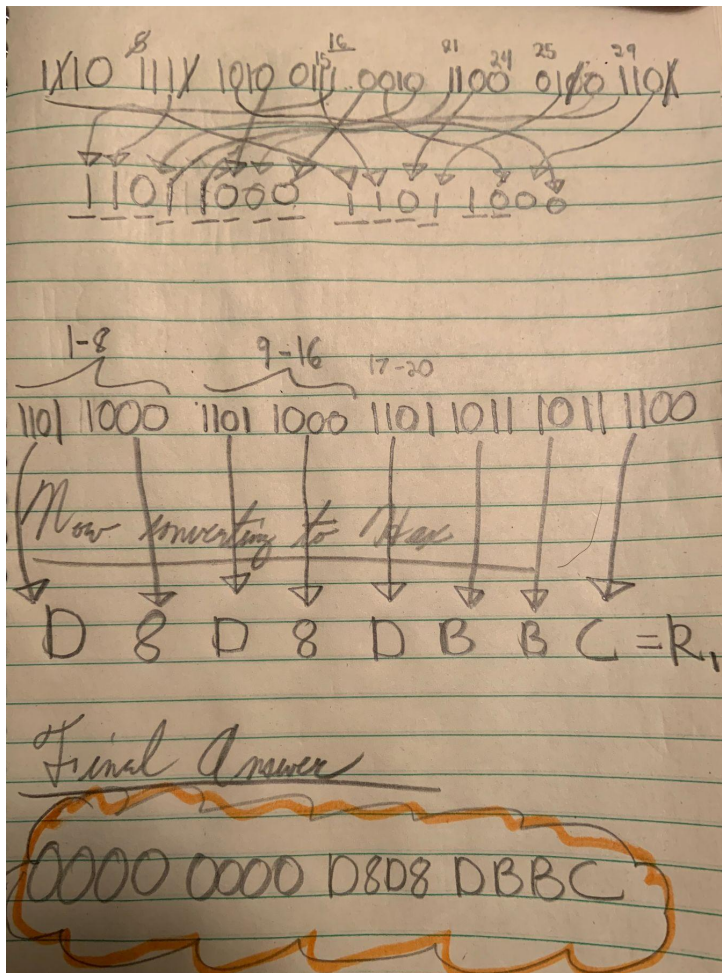 8 16 21 24 25 29
15
1110 1111 1010 0111 0010 1100 0110 1101
1101 1000 1101 1000
1-8 9-16 17-20
1101 1000 1101 1000 1101 1011 1011 1100
Now converting to Hex
D 8 D 8 D B B C = R1
Final Answer
0000 0000 D8D8 DBBC